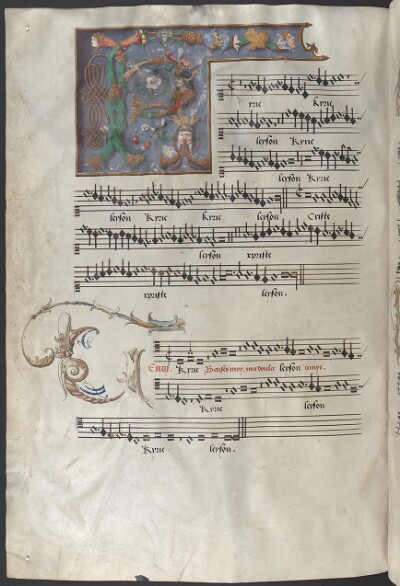 K yrie Kyrie
leyson Kyrie
leyson Kyrie
leyson Kyrie Kyrie leyson Criste
leyson xpriste
xpriste leyson.
Tenor. Kyrie leyson
Kyrie leyson
Kyrie leyson.